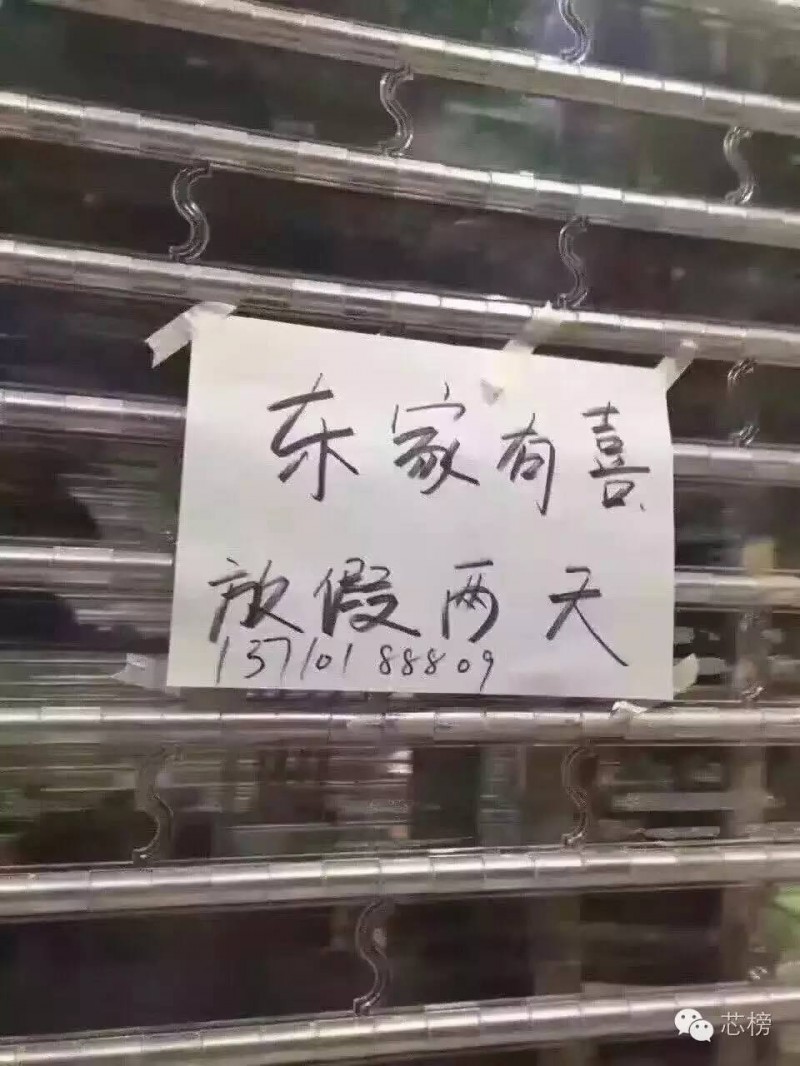 东家有喜
放假两天
13710188809
芯榜